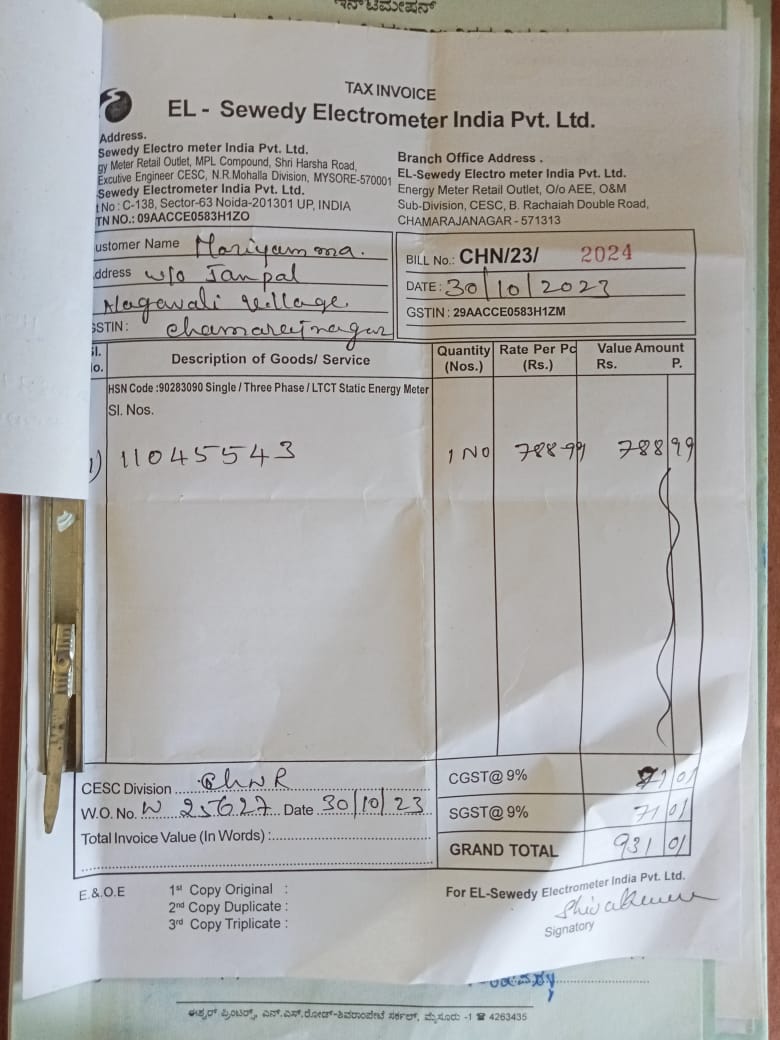 ಇನ್ ಟಿಮೇಷನ್
TAX INVOICE
EL - Sewedy Electrometer India Pvt. Ltd.
Address.
Sewedy Electro meter India Pvt. Ltd.
gy Meter Retail Outlet, MPL Compound, Shri Harsha Road,
Excutive Engineer CESC, N.R.Mohalla Division, MYSORE-570001
Sewedy Electrometer India Pvt. Ltd.
t No : C-138, Sector-63 Noida-201301 UP, INDIA
TN NO.: 09AACCE0583H1ZO
Branch Office Address .
EL-Sewedy Electro meter India Pvt. Ltd.
Energy Meter Retail Outlet, O/o AEE, O&M
Sub-Division, CESC, B. Rachaiah Double Road,
CHAMARAJANAGAR - 571313
ustomer Name Mariyamma.
ddress w/o Janpal
Nagavali village.
GSTIN : chamarajnagar
BILL No.: CHN/23/ 2024
DATE : 30/10/2023
GSTIN : 29AACCE0583H1ZM
Sl. No. Description of Goods/ Service Quantity (Nos.) Rate Per Pc (Rs.) Value Amount Rs. P.
HSN Code :90283090 Single / Three Phase / LTCT Static Energy Meter
Sl. Nos.
1) 11045543 1 NO 788-99 788 99
CESC Division CHNR CGST@ 9% 71 01
W.O. No. W 25627 Date 30/10/23 SGST@ 9% 71 01
Total Invoice Value (In Words) : GRAND TOTAL 931 01
E.&.O.E 1st Copy Original :
2nd Copy Duplicate :
3rd Copy Triplicate :
For EL-Sewedy Electrometer India Pvt. Ltd.
Signatory
ಈಶ್ವರ್ ಪ್ರಿಂಟರ್ಸ್, ಎನ್.ಎಸ್.ರೋಡ್-ಶಿವರಾಂಪೇಟೆ ಸರ್ಕಲ್, ಮೈಸೂರು -1 ☎ 4263435